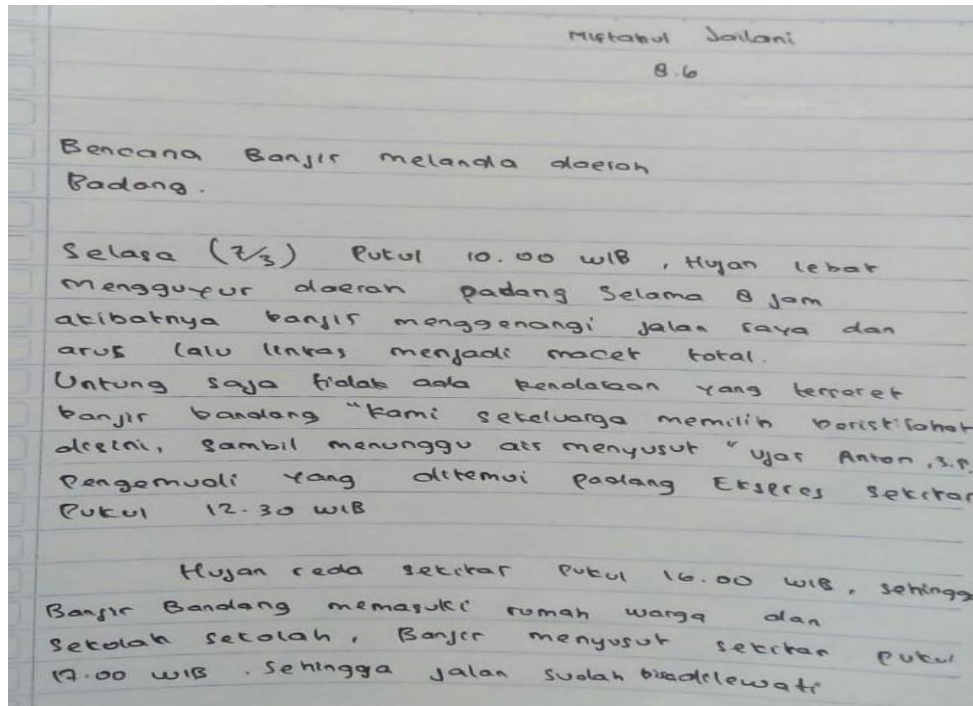 Miftahul Jailani
8.6
Bencana Banjir melanda daerah
Padang.
Selasa (7/3) Pukul 10.00 WIB, Hujan lebat
mengguyur daerah padang Selama 8 jam
akibatnya banjir menggenangi jalan raya dan
arus lalu lintas menjadi macet total.
Untung saja tidak ada kendaraan yang terseret
banjir bandang "kami sekeluarga memilih beristirahat
disini, sambil menunggu air menyusut" Ujar Anton, S.P.
Pengemudi yang ditemui Padang Ekspres sekitar
Pukul 12.30 WIB
Hujan reda sekitar Pukul 16.00 WIB, sehingga
Banjir Bandang memasuki rumah warga dan
Sekolah sekolah, Banjir menyusut sekitar pukul
17.00 WIB. Sehingga jalan sudah bisa dilewati